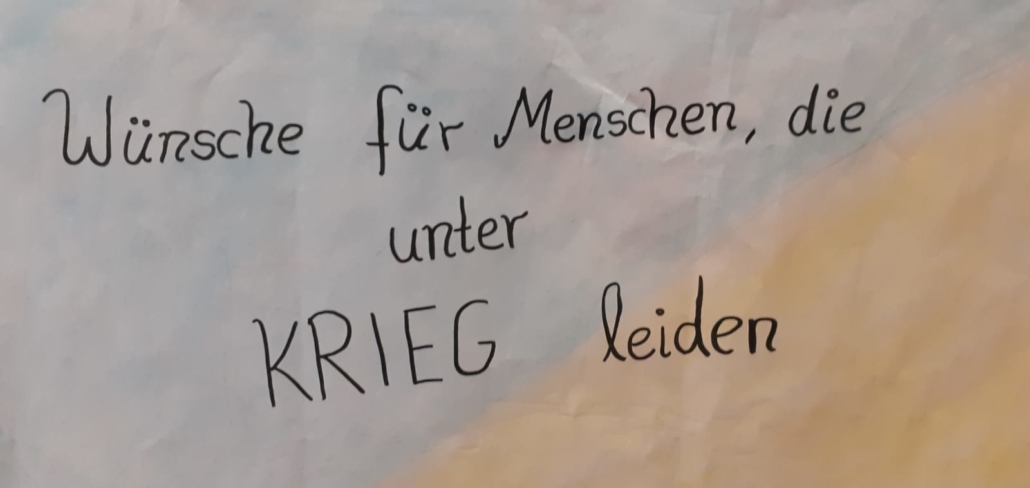 Wünsche für Menschen, die
unter
KRIEG leiden